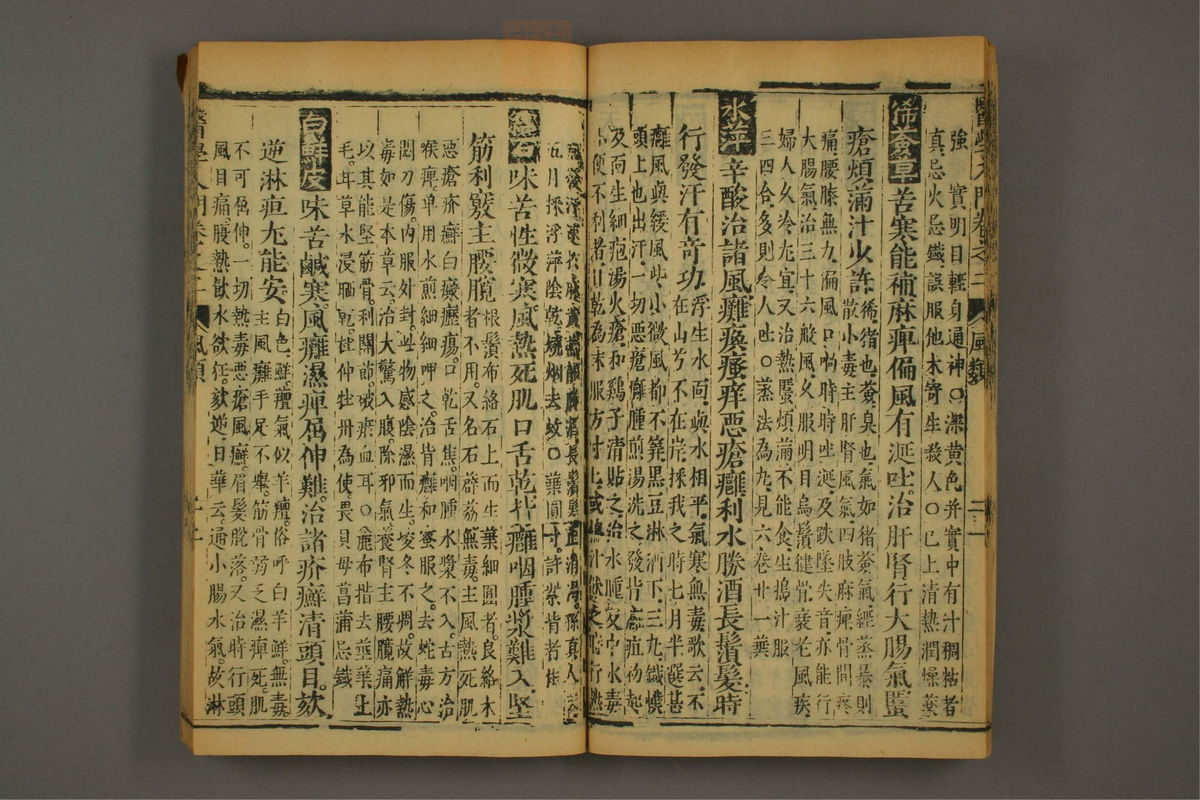 醫學入門卷之二
風類
強實明目輕身通神○深黃色并實中有汁稠粘者
真忌火忌鐵誤服他木寄生殺人○已上清熱潤燥藥
豨薟草苦寒能補麻痺偏風有涎吐治肝腎行大腸氣䘌
瘡煩滿汁少許
豨猪也薟臭也氣如猪薟氣經蒸暴則
散小毒主肝腎風氣四肢麻痺骨間疼
痛腰膝無力偏風口喎時時吐涎及跌墜失音亦能行
大腸氣治三十六般風久服明目烏鬚健骨衰老風疾
婦人久冷尤宜又治熱䘌煩滿不能食生搗汁服
三四合多則令人吐○蒸法為丸見六卷廿一葉
水萍辛酸治諸風癱瘓瘙痒惡瘡癰利水勝酒長鬚髮時
行發汗有奇功
浮生水面與水相平氣寒無毒歌云不
在山兮不在岸採我之時七月半選甚
癱風與緩風些小微風都不筭黑豆淋酒下三丸鐵幞
頭上也出汗一切惡瘡癰腫煎湯洗之發背癰疽初起
及面生細疱湯火瘡和鷄子清貼之治水腫及中水毒
小便不利者日乾為末服方寸匕或
五月採浮萍陰乾燒烟去蚊○葉圓寸許紫背者佳
絡石味苦性微寒風熱死肌口舌乾背癰咽腫漿難入堅
筋利竅主腰髖
根鬚布絡石上而生葉細圓者良絡木
者不用又名石薜荔無毒主風熱死肌
惡瘡疥癬白癜癧瘍口乾舌焦咽腫漿不入古方治
喉痺单用水煎細細呷之治背癰和蜜服之去蛇毒心
悶刀傷內服外封此物感陰濕而生凌冬不凋故解熱
毒如是本草云治大驚入腹除邪氣養腎主腰髖痛亦
以其能堅筋骨利關節破瘀血耳○麄布揩去莖葉上
毛甘草水浸晒乾杜仲牡丹為使畏貝母菖蒲忌鐵
白鮮皮味苦鹹寒風癱濕痺屈伸難治諸疥癬清頭目欬
逆淋疸尤能安
白色鮮羶氣似羊羶俗呼白羊鮮無毒
主風癱手足不舉筋骨弱乏濕痺死肌
不可屈伸一切熱毒惡瘡風癬眉髮脫落又治時行頭
風目痛腹熱飲水欲狂欬逆日華云通小腸水氣故淋
醫學入門卷之二
風類